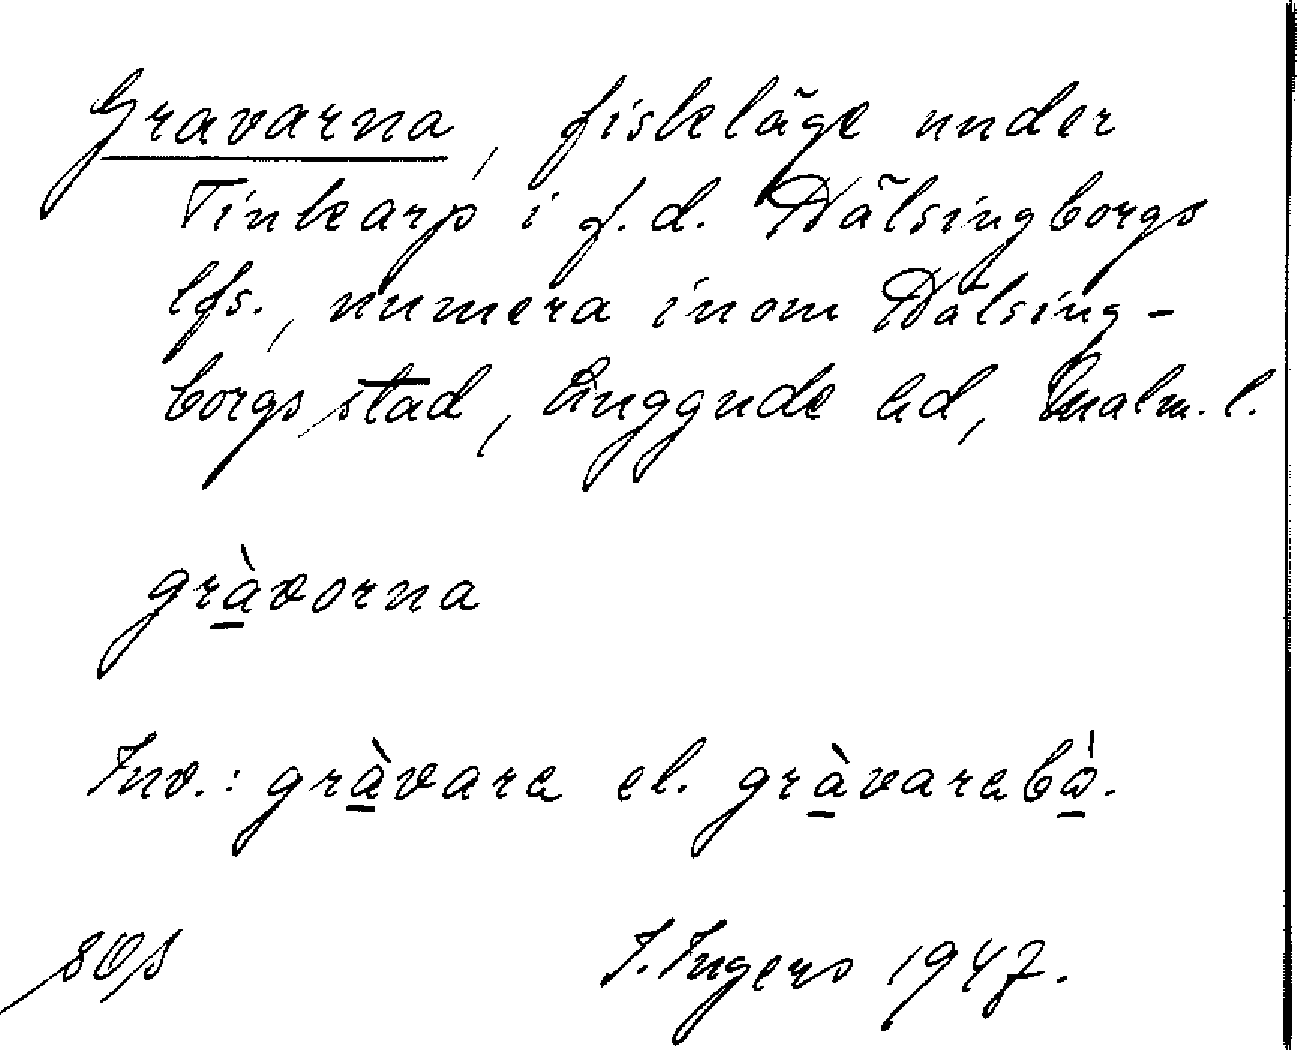 Gravarna, fiskeläge under
Tinkarp i f.d. Hälsingborgs
lfs., numera inom Hälsing-
borgs stad, Luggude hd, Malm. l.
gràvorna
Inv.: gràvara el. gràvarabò.
I. Ingers 1947.